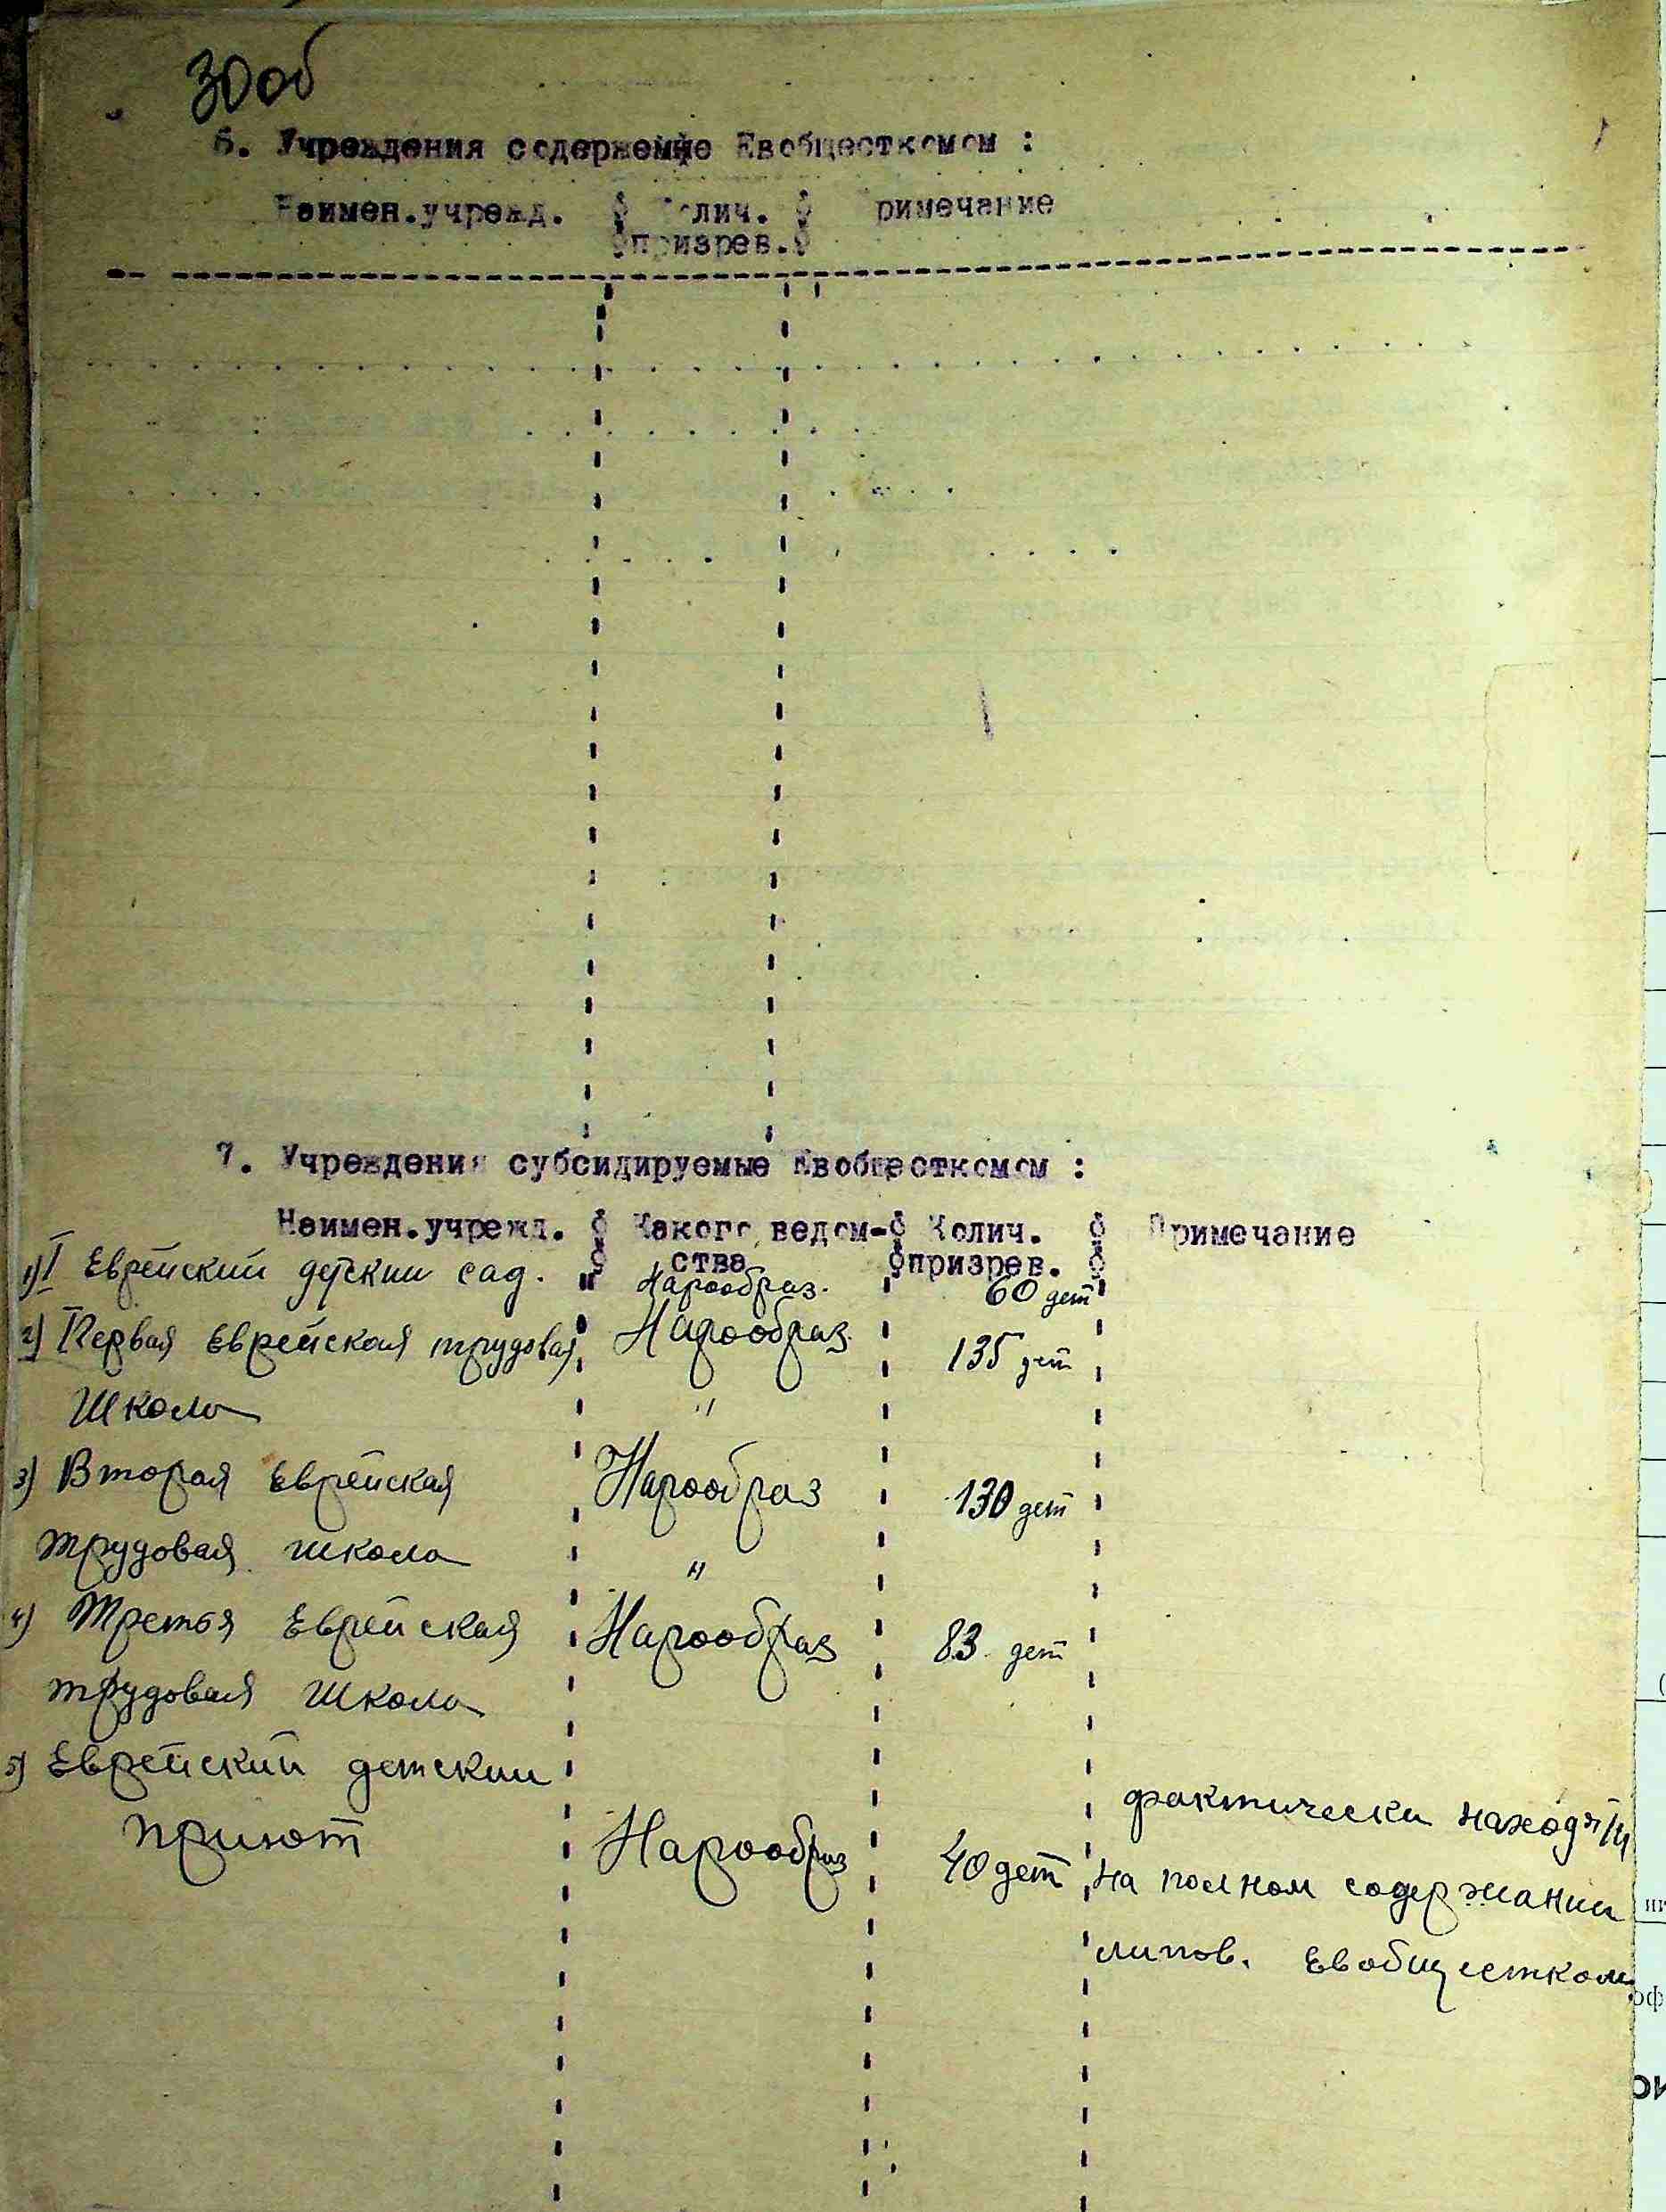 30 об
6. Учреждения содержемые Евобщесткомом :
Наимен.учрежд. Колич. Примечание
призрев.
7. Учреждения субсидируемые Евобщесткомом :
Наимен.учрежд. Какого ведом- Колич. Примечание
ства призрев.
1) I Еврейский детский сад. Наробраз. 60 дет
2) Первая Еврейская трудовая Нарообраз. 135 дет
Школа "
3) Вторая Еврейская Нарообраз 130 дет
трудовая школа "
4) Третья Еврейская Нарообраз 83 дет
трудовая школа
5) Еврейский детский
приют Нарообраз 40 дет
фактически находятся
на полном содержании
липов. Евобщестком.